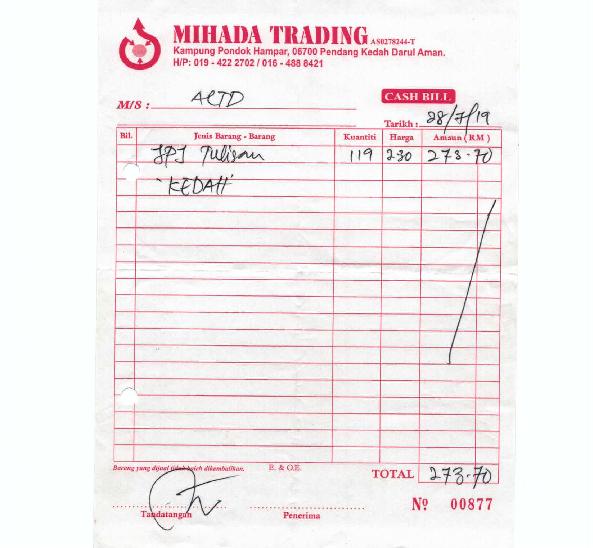 MIHADA TRADING AS0278244-T
Kampung Pondok Hampar, 06700 Pendang Kedah Darul Aman.
H/P: 019 - 422 2702 / 016 - 488 8421
CASH BILL
M/S : ACTD
Tarikh : 28/7/19
Bil. Jenis Barang - Barang Kuantiti Harga Amaun ( RM )
JPJ Tulisan 119 2.30 273-70
"KEDAH"
Barang yang dijual tidak boleh dikembalikan. E. & O.E. TOTAL 273-70
Nº 00877
Tandatangan Penerima